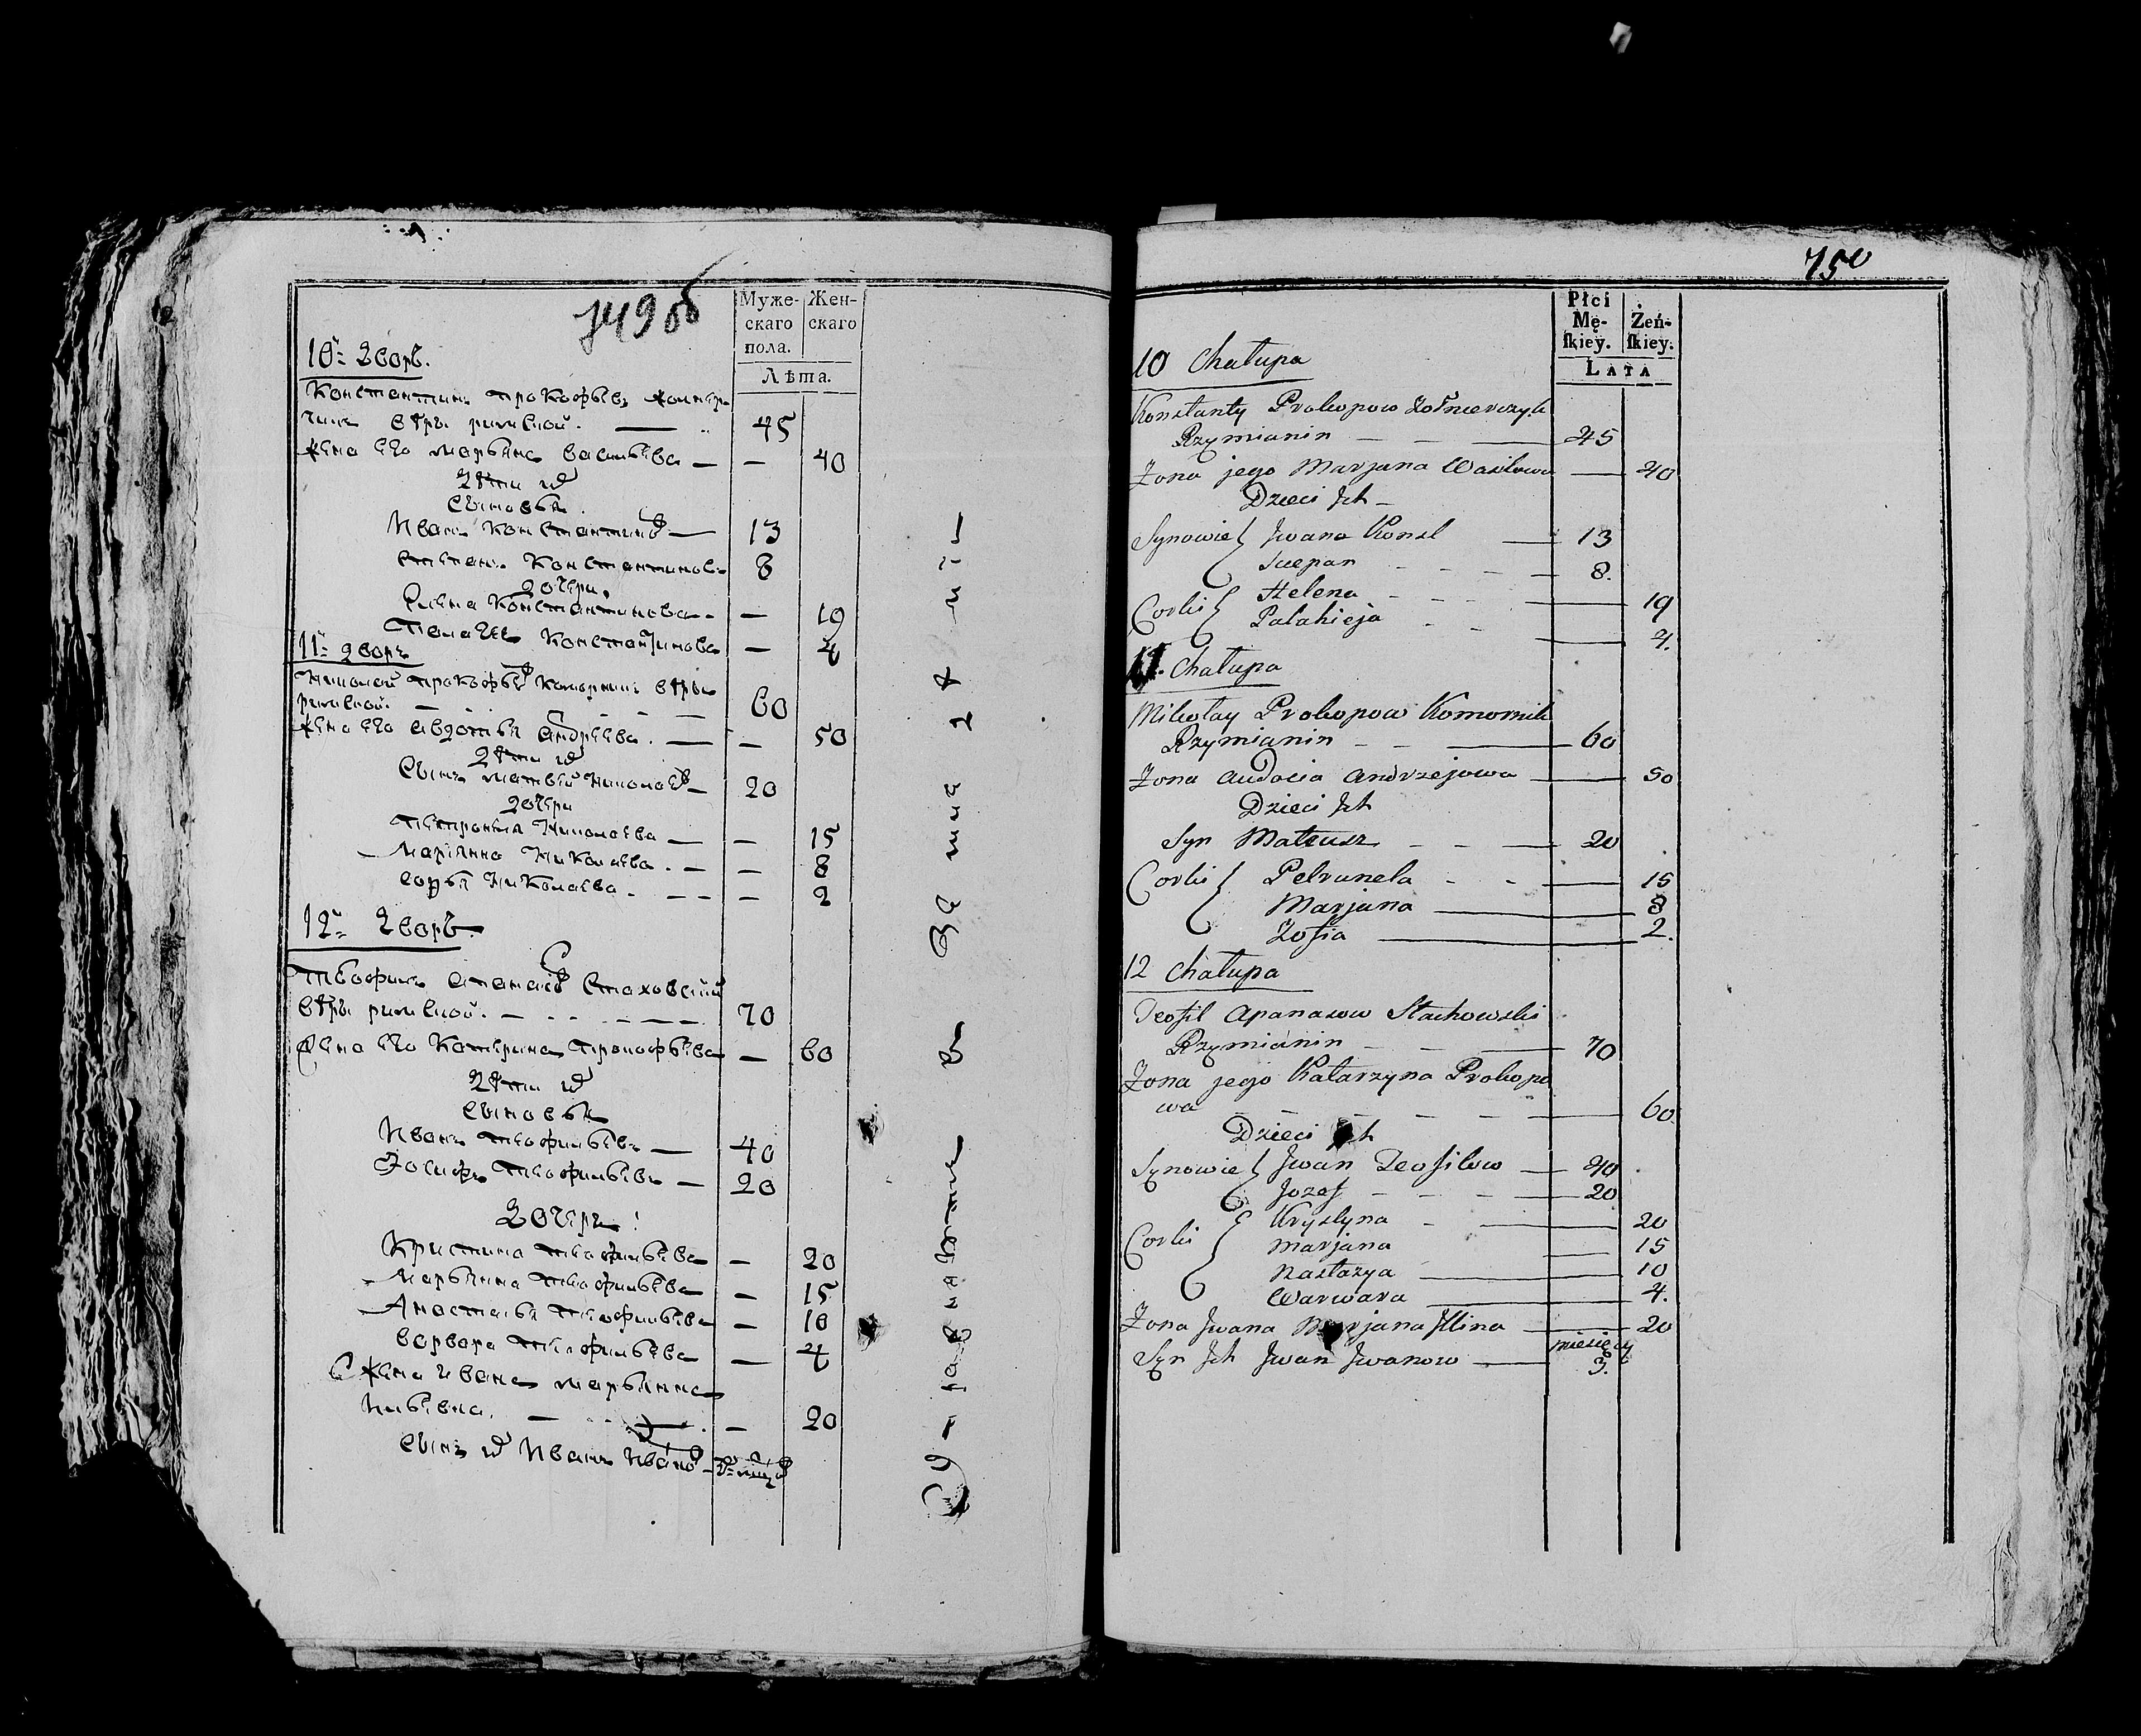 749 об
Муже- Жен-
скаго скаго
пола.
Лѣта.
10й дворъ.
Константинъ Прокофьевъ жолнер-
чикъ вѣры римской. — 45
жена его Марьяна Васильева — — 40
дѣти их
сыновья
Иванъ Константинов — 13
Степанъ Константинов — 8
дочери
Елена Константинова — — 19
Пелагея Константинова — 4
11й дворъ
Николай Прокофьев коморникъ вѣры
римской. — 60
жена его Авдотья Андреева. — — 50
дѣти их
сынъ Матвей Николаев — 20
дочери
Петронеля Николаева — — 15
Марианна Николаева. — — 8
Софья Николаева. — — 2
12й дворъ.
Теофилъ Апанасов Стаховский
вѣры римской. — 70
Жена его Катерина Прокофьева — 60
дѣти их
сыновья
Иванъ Теофильевъ — 40
Иосифъ Теофильевъ — 20
дочери:
Кристина Теофильева — 20
Марьянна Теофильева — 15
Анастасья Теофильева — 10
Варвара Теофильева — 4
Жена Ивана Марьянна
Ильевна. — — 20
сынъ их Иванъ Иванов — 3 мсцов
750
Płci
Mę- Żeń-
skiey. skiey.
LATA
10 Chałupa
Konstanty Prokopow Zołnierczyk
Rzymianin — — — 45
Zona jego Marjana Wasilowa — 40
Dzieci Ich —
Synowie Iwana Konst — 13
Scepan — — — 8.
Corki Helena — — 19
Palahieja — — 4.
11. Chałupa
Mikołay Prokopow Komornik
Rzymianin — — — 60
Zona Audocia Andrzejowa — 50
Dzieci Ich
Syn Mateusz — — — 20
Corki Petrunela — — — 15
Marjana — 8
Zofia — 2.
12 Chałupa
Teofil Apanasow Stachowski
Rzymianin — — — 70
Zona jego Katarzyna Prokopo
wa — — — — — 60.
Dzieci Ich
Synowie Iwan Teofilow — 40
Jozef — — — — 20
Corki Krystyna — — 20
Marjana — 15
Nastazya — 10
Warwara — 4.
Zona Iwana Marjana Ilina — 20
miesięcy
Syn Ich Iwan Iwanow — 3.